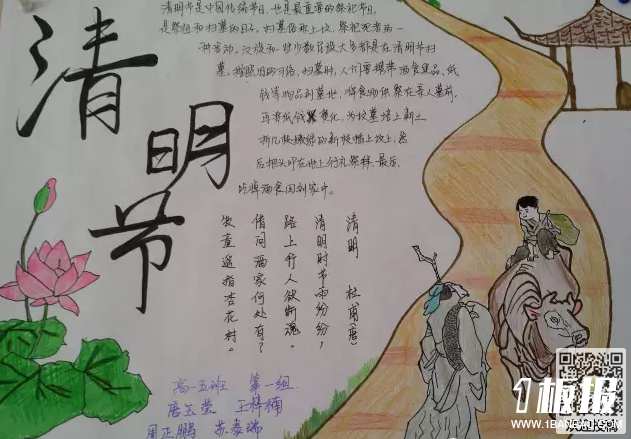 清明节
清明节是中国传统节日,也是最重要的祭祀节日,
是祭祖和扫墓的日子。扫墓俗称上坟,祭祀死者的一
种活动。汉族和一些少数民族大多都是在清明节扫
墓。按照旧的习俗,扫墓时,人们要携带酒食果品、纸
钱等物品到墓地,将食物供祭在亲人墓前,
再将纸钱焚化,为坟墓培上新土,
折几枝嫩绿的新枝插上坟上,然
后把头叩在地上行礼祭拜,最后
吃掉酒食回到家中。
清明 杜甫(唐)
清明时节雨纷纷,
路上行人欲断魂。
借问酒家何处有?
牧童遥指杏花村。
高一五班 第一组
王梓楠
周正鹏 苏泰瑞
1板报
WWW.1BANBAO.COM